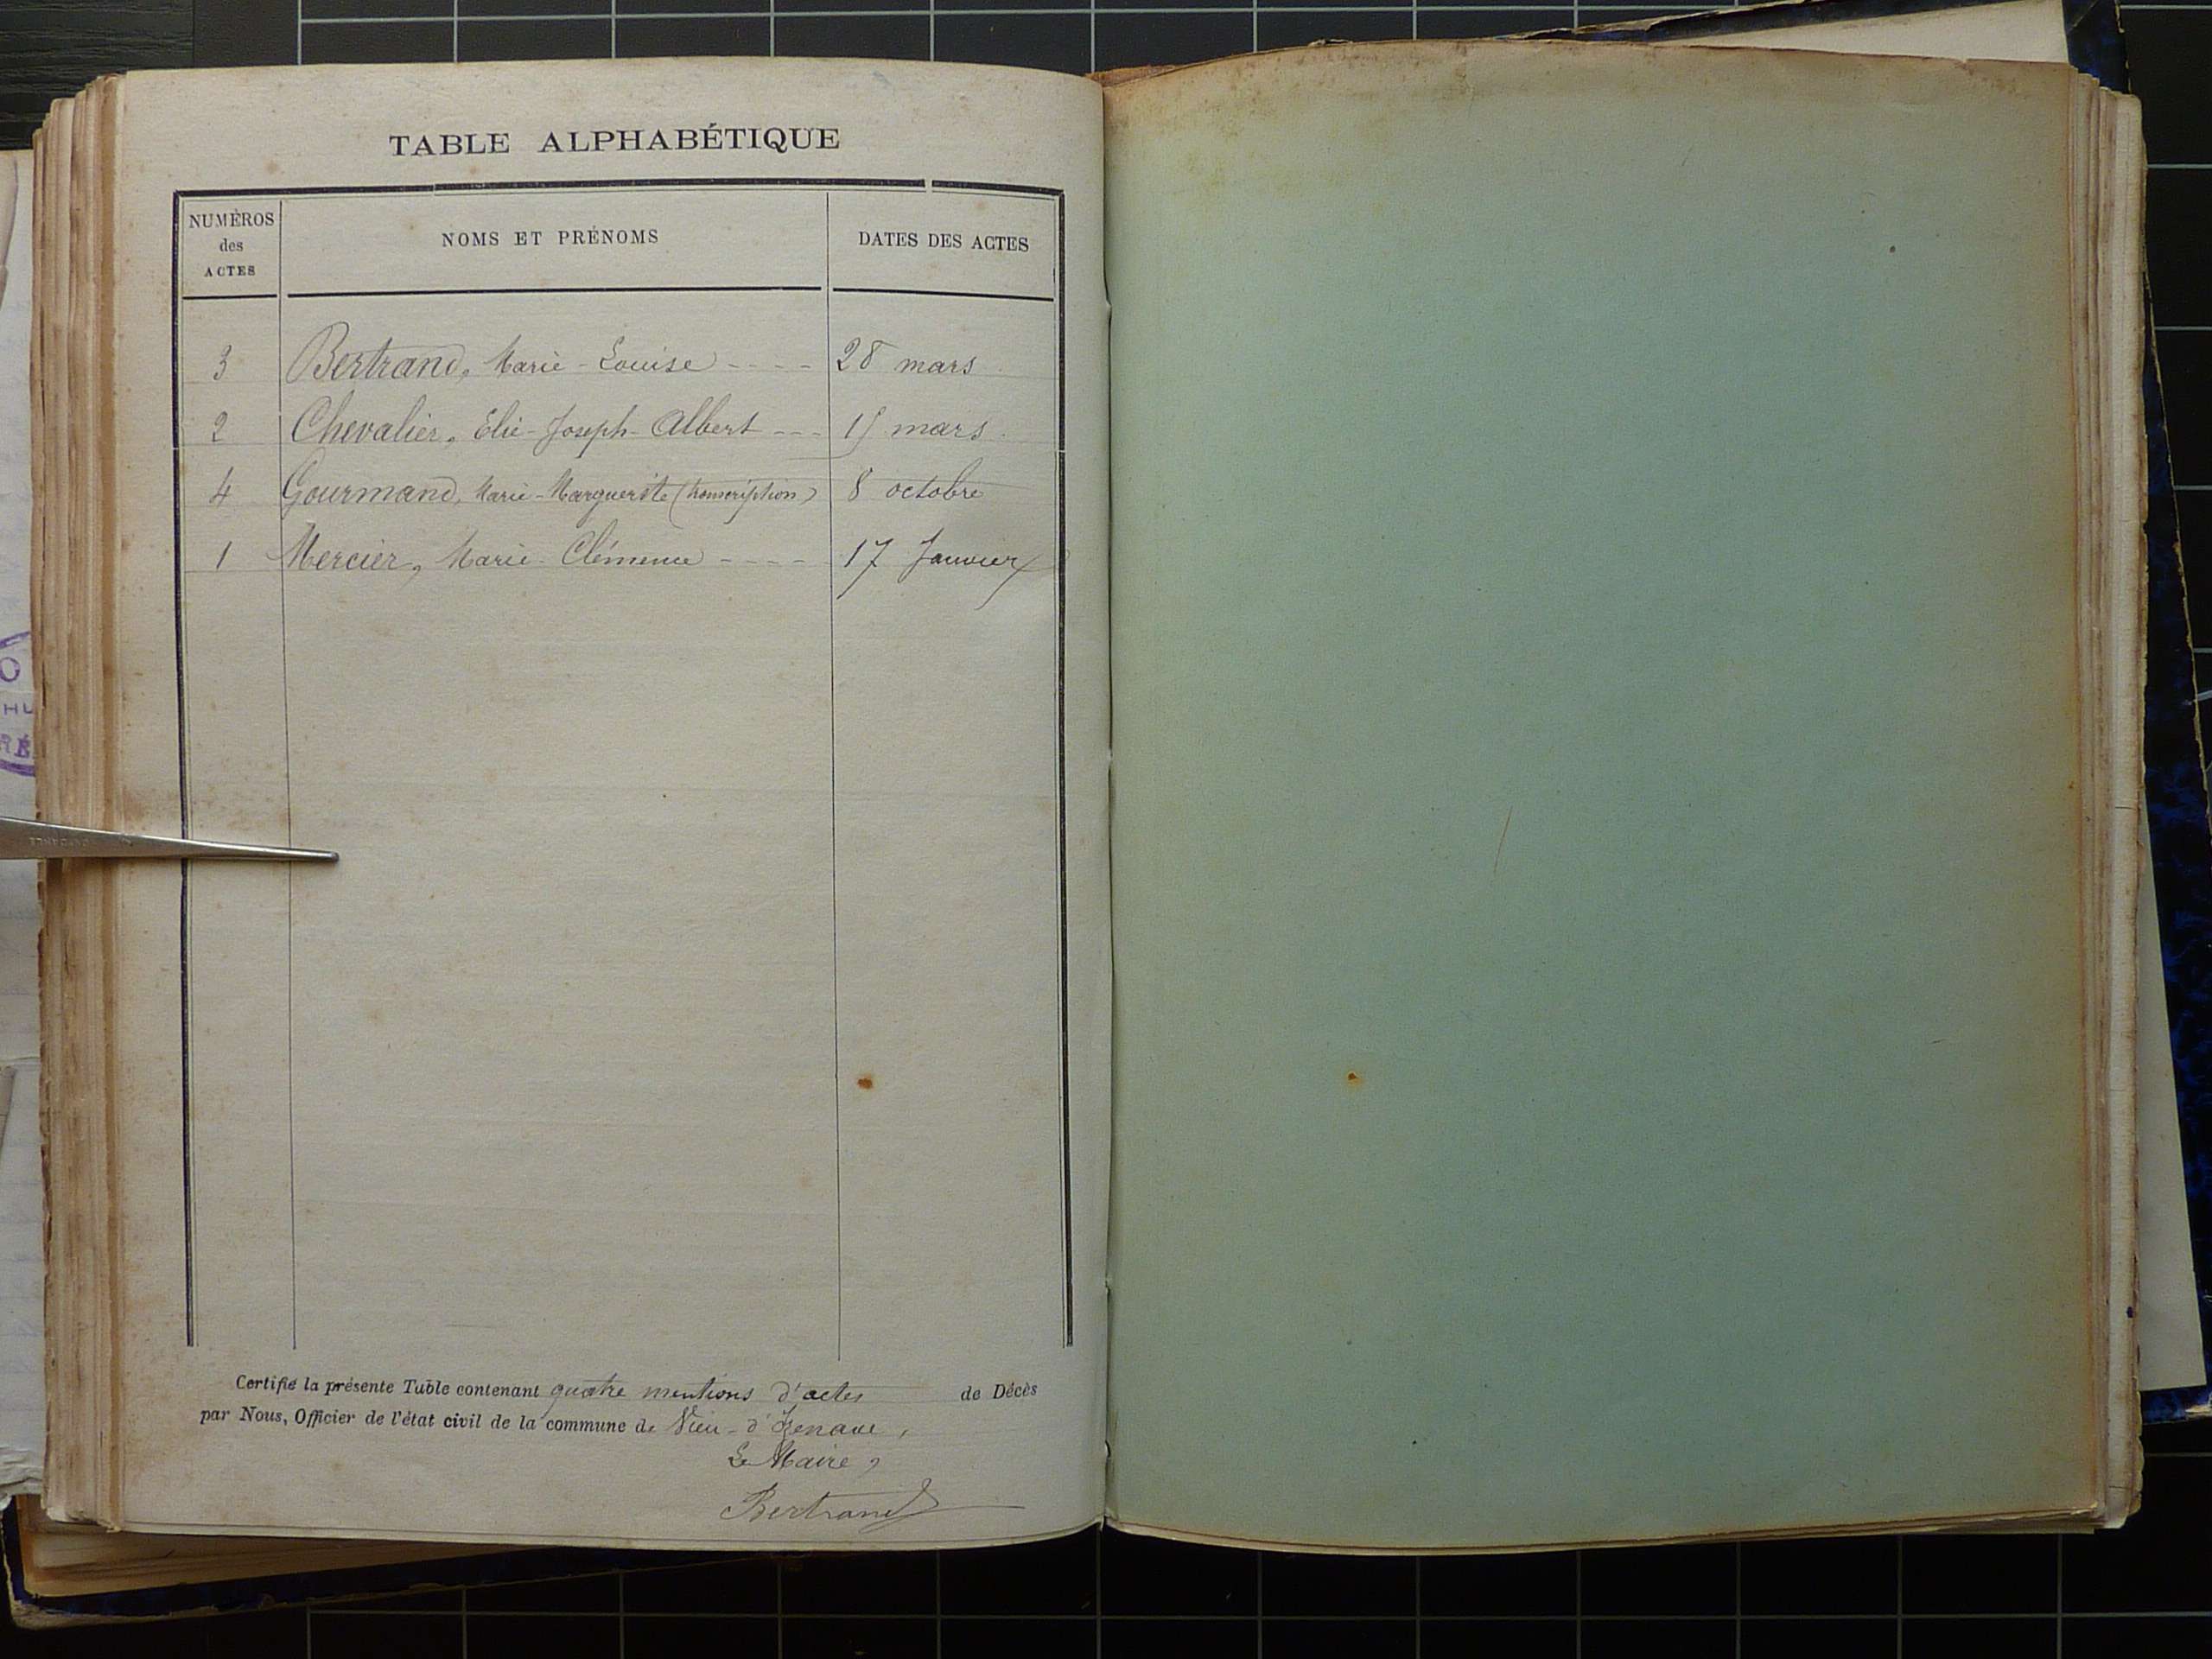 TABLE ALPHABÉTIQUE
NUMÉROS des ACTES NOMS ET PRÉNOMS DATES DES ACTES
3 Bertrand, Marie-Louise ---- 28 mars
2 Chevalier, Elie-Joseph-Albert --- 15 mars
4 Gourmand, Marie-Marguerite (transcription) 8 octobre
1 Mercier, Marie-Clémence ---- 17 Janvier
Certifié la présente Table contenant quatre mentions d'actes de Décès
par Nous, Officier de l'état civil de la commune de Vieu-d'Izenave,
Le Maire,
Bertrand